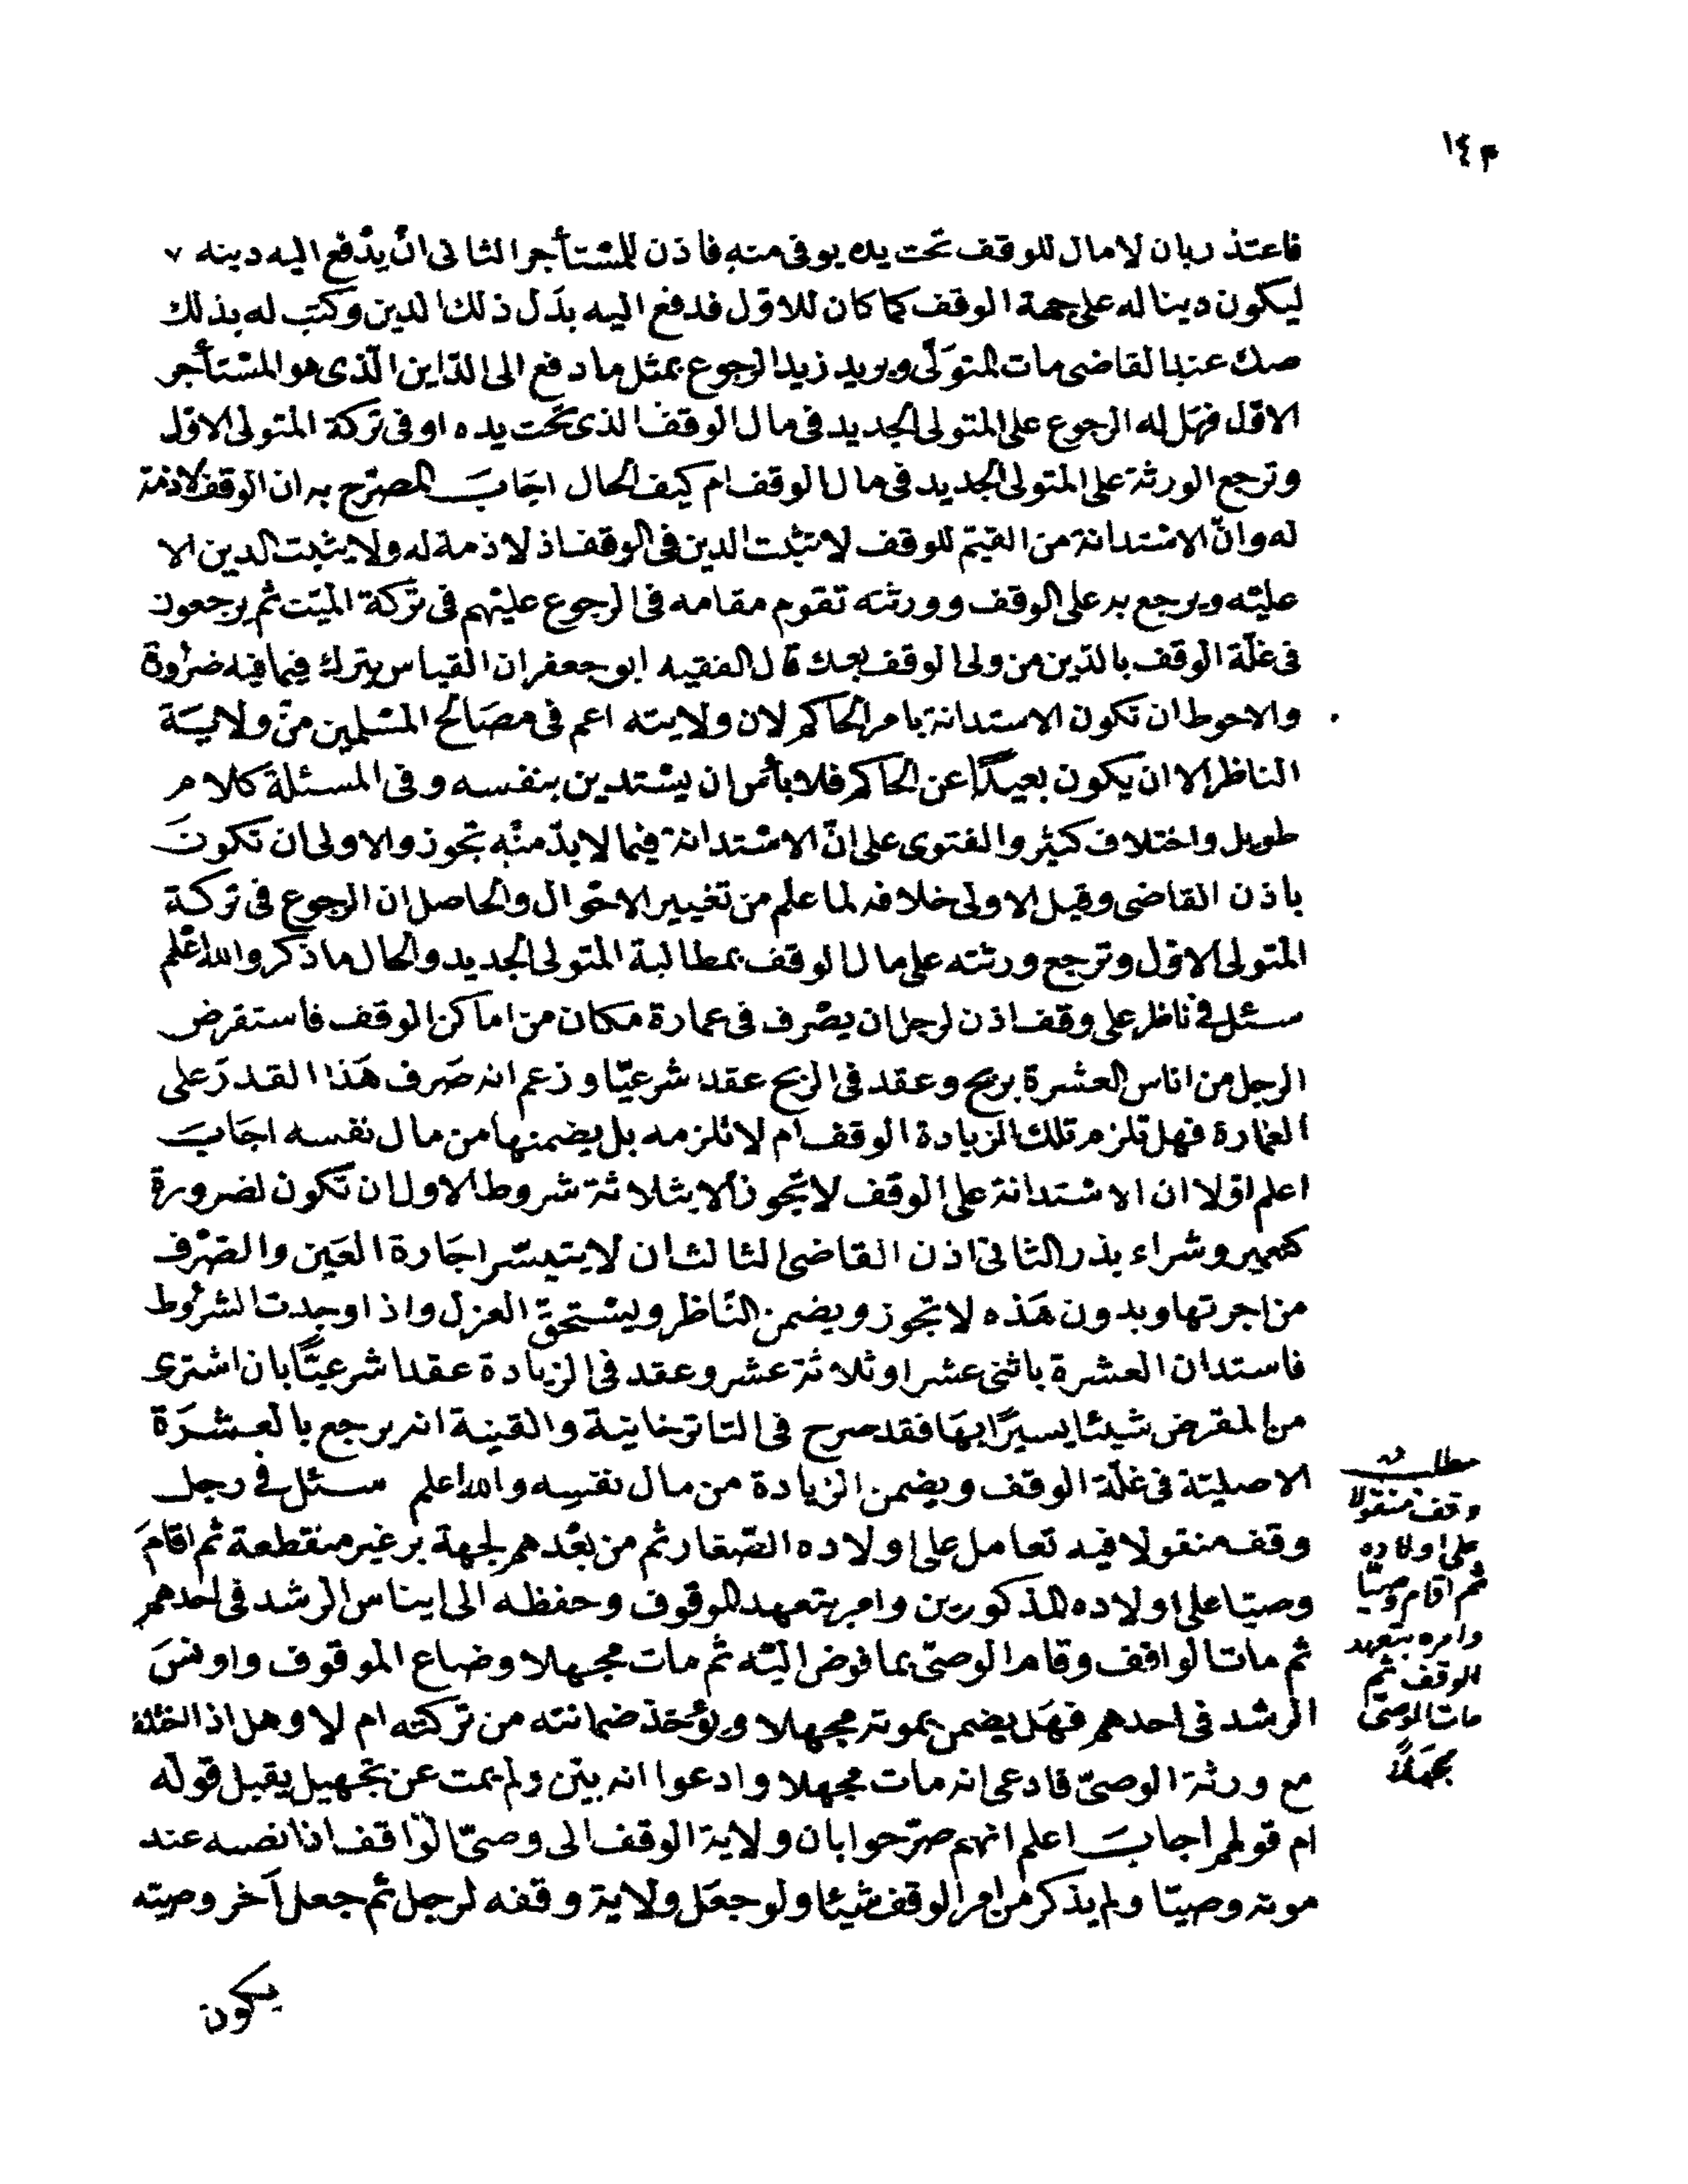 ١٤٣
فاعتذر بان لا مال للوقف تحت يده يوفى منه فاذن للمستأجر الثانى ان يدفع اليه دينه
ليكون دينا له على جهة الوقف كما كان للاول فدفع اليه بدل ذلك الدين وكتب له بذلك
صك عند القاضى مات المتولّى ويريد زيد الرجوع بمثل ما دفع الى الدّاين الّذى هو المستأجر
الاوّل فهل له الرجوع على المتولى الجديد فى مال الوقف الذى تحت يده او فى تركة المتولى الاول
وترجع الورثة على المتولى الجديد فى مال الوقف ام كيف الحال اجَابَ المصرّح به ان الوقف لا ذمة
له وانّ الاستدانة من القيّم للوقف لا تثبت الدين فى الوقف اذ لا ذمة له ولا يثبت الدين الا
عليه ويرجع به على الوقف وورثته تقوم مقامه فى الرجوع عليهم فى تركة الميّت ثم يرجعون
فى غلّة الوقف بالدّين من ولى الوقف بعده قال الفقيه ابو جعفر ان القياس يترك فيما فيه ضرورة
والاحوط ان تكون الاستدانة بامر الحاكم لان ولايته اعم فى مصَالح المسلمين من ولاية
الناظر الا ان يكون بعيدًا عن الحاكم فلا بأس ان يستدين بنفسه وفى المسئلة كلام
طويل واختلاف كثير والفتوى على انّ الاستدانة فيما لا بدّ منه تجوز والاولى ان تكون
باذن القاضى وقيل الاولى خلافه لما علم من تغيير الاحوال والحاصل ان الرجوع فى تركة
المتولى الاوّل وترجع ورثته على مال الوقف بمطالبة المتولى الجديد والحال ما ذكر والله اعلم
سئل فى ناظر على وقف اذن لرجل ان يصرف فى عمارة مكان من اماكن الوقف فاستقرض
الرجل من اناس العشرة بربح وعقد فى الربح عقدا شرعيّا وزعم انه صَرف هَذا القدرَ على
العمارة فهل تلزم تلك الزيادة الوقف ام لا تلزمه بل يضمنها من مال نفسه اجَابَ
اعلم اوّلا ان الاستدانة على الوقف لا تجوز الا بثلاثة شروط الاول ان تكون لضرورة
كتعمير وشراء بذر الثانى اذن القاضى الثالث ان لا يتيسّر اجَارة العَين والصّرف
من اجرتها وبدون هَذه لا تجوز ويضمن النّاظر ويستحقّ العزل واذا وجدت الشروط
فاستدان العشرة باثنى عشر او ثلاثة عشر وعقد فى الزيادة عقدا شرعيّا بان اشترى
من المقرض شيئا يسيرًا بهَا فقد صرح فى التاترخانية والقنية انه يرجع بالعشرَة
الاصليّة فى غلّة الوقف ويضمن الزيادة من مال نفسِه والله اعلم سئل فى رجل
وقف منقولا فيه تعامل على اولاده الصّغار ثم من بعْدهم لجهة بر غير منقطعة ثم اقامَ
وصيّا على اولاده المذكورين وامره بتعهد الموقوف وحفظه الى ايناس الرشد فى احدهم
ثم مات الواقف وقام الوصىّ بما فوض اليه ثم مات مجهلا وضاع الموقوف واونسَ
الرشد فى احدهم فهَل يضمن بموته مجهلا ويؤخذ ضمانته من تركته ام لا وهل اذا اختلف
مع ورثة الوصىّ فادعى انه مات مجهلا وادعوا انه بيّن ولم يمت عن تجهيل يقبل قوله
ام قولهم اجابَ اعلم انهم صرّحوا بان ولاية الوقف الى وصىّ الواقف اذا نصبه عند
موته وصيّا ولم يذكر من امر الوقف شيئا ولو جعَل ولاية وقفه لرجل ثم جعل آخر وصيّه
يكون
مطلب
وقف منقولا
على اولاده
ثم اقام وصيّا
وامره بتعهد
الوقف ثم
مات الوصىّ
مجهلًا